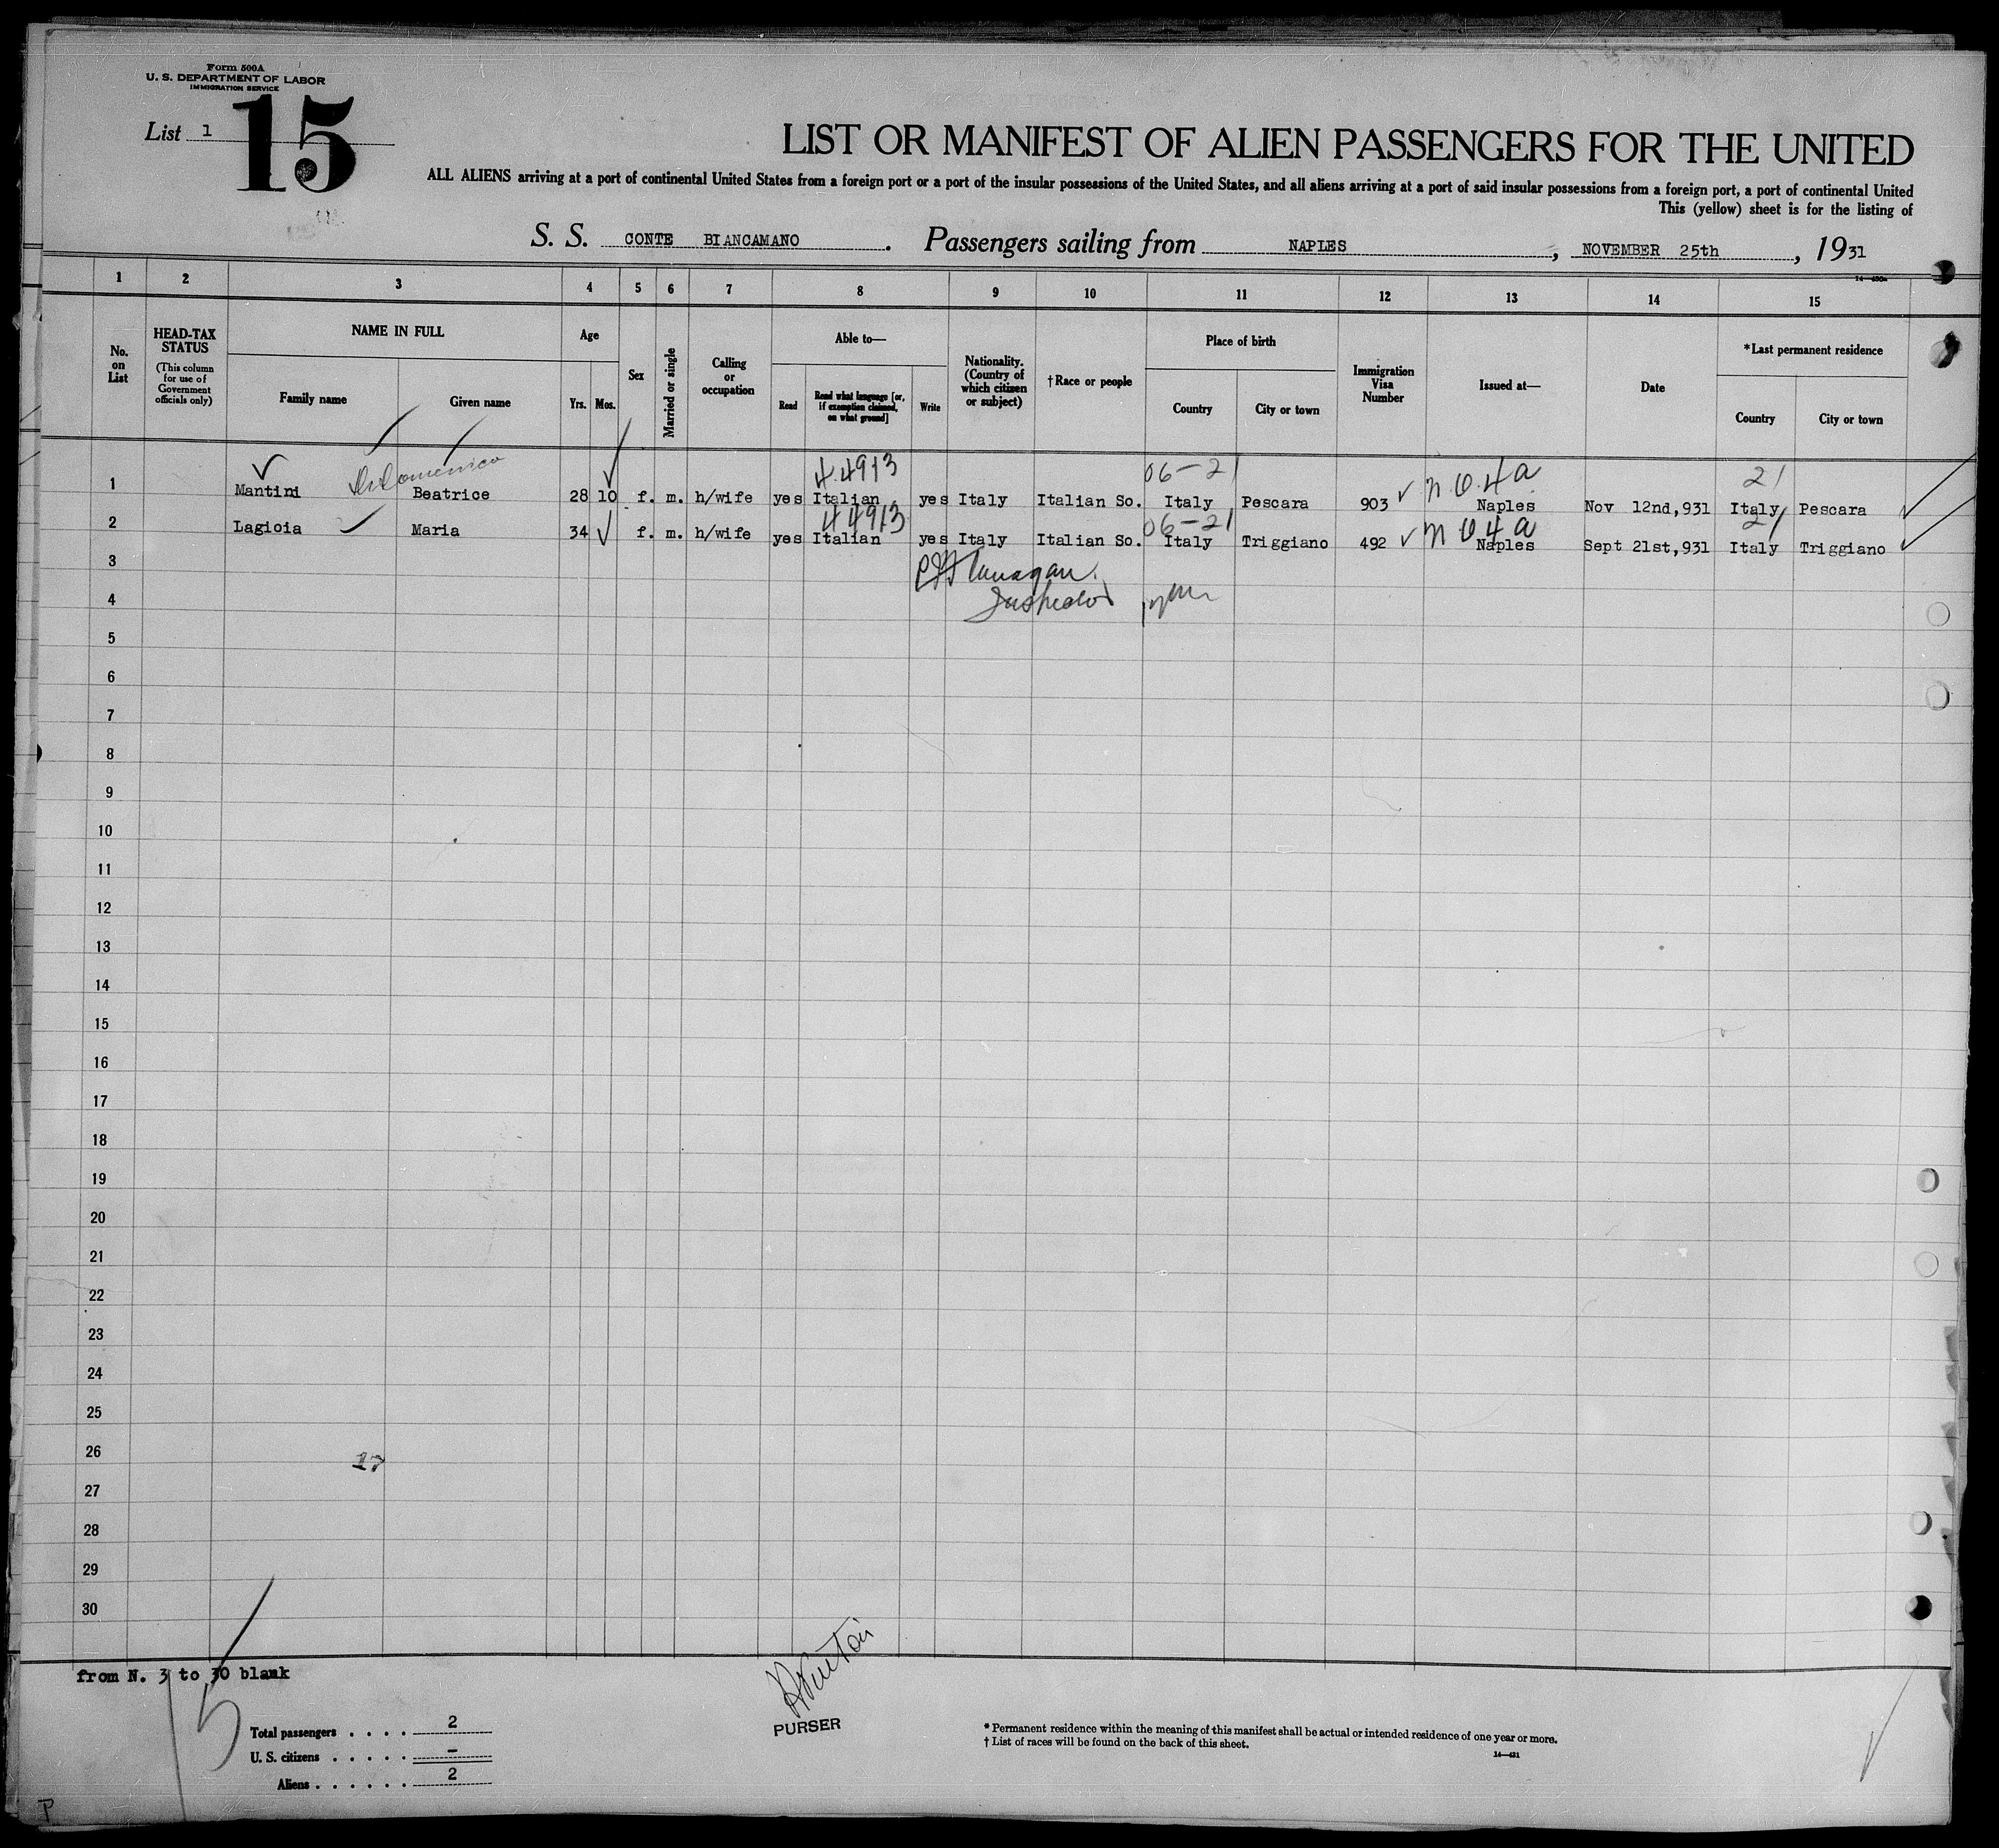 Form 500A
U. S. DEPARTMENT OF LABOR
IMMIGRATION SERVICE
List 1
15
LIST OR MANIFEST OF ALIEN PASSENGERS FOR THE UNITED
ALL ALIENS arriving at a port of continental United States from a foreign port or a port of the insular possessions of the United States, and all aliens arriving at a port of said insular possessions from a foreign port, a port of continental United
This (yellow) sheet is for the listing of
S. S. CONTE BIANCAMANO. Passengers sailing from NAPLES, NOVEMBER 25th, 1931
1 2 3 4 5 6 7 8 9 10 11 12 13 14 15
No. on List
HEAD-TAX STATUS
(This column for use of Government officials only)
NAME IN FULL
Family name
Given name
Age
Yrs. Mos.
Sex
Married or single
Calling or occupation
Able to—
Read
Read what language [or, if exemption claimed, on what ground]
Write
Nationality. (Country of which citizen or subject)
† Race or people
Place of birth
Country
City or town
Immigration Visa Number
Issued at—
Date
*Last permanent residence
Country
City or town
44913 06-21 21
1 Mantini Beatrice 28 10 f. m. h/wife yes Italian yes Italy Italian So. Italy Pescara 903 Naples Nov 12nd,931 Italy Pescara
44913 06-21 21
2 Lagioia Maria 34 f. m. h/wife yes Italian yes Italy Italian So. Italy Triggiano 492 Naples Sept 21st,931 Italy Triggiano
3
4
5
6
7
8
9
10
11
12
13
14
15
16
17
18
19
20
21
22
23
24
25
26
17
27
28
29
30
from N. 3 to 30 blank
Total passengers . . . . 2
U. S. citizens . . . . . –
Aliens . . . . . . 2
PURSER
* Permanent residence within the meaning of this manifest shall be actual or intended residence of one year or more.
† List of races will be found on the back of this sheet.
14—431